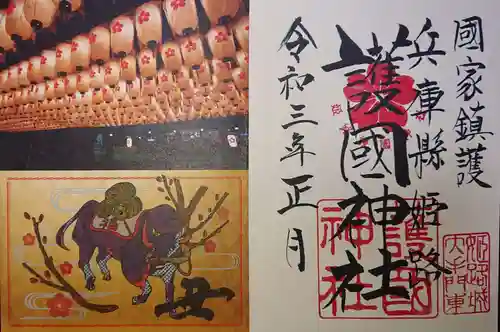 國家鎮護
兵庫縣姫路
護國神社
令和三年正月
護国
神社
姫路城
大手門東
丑